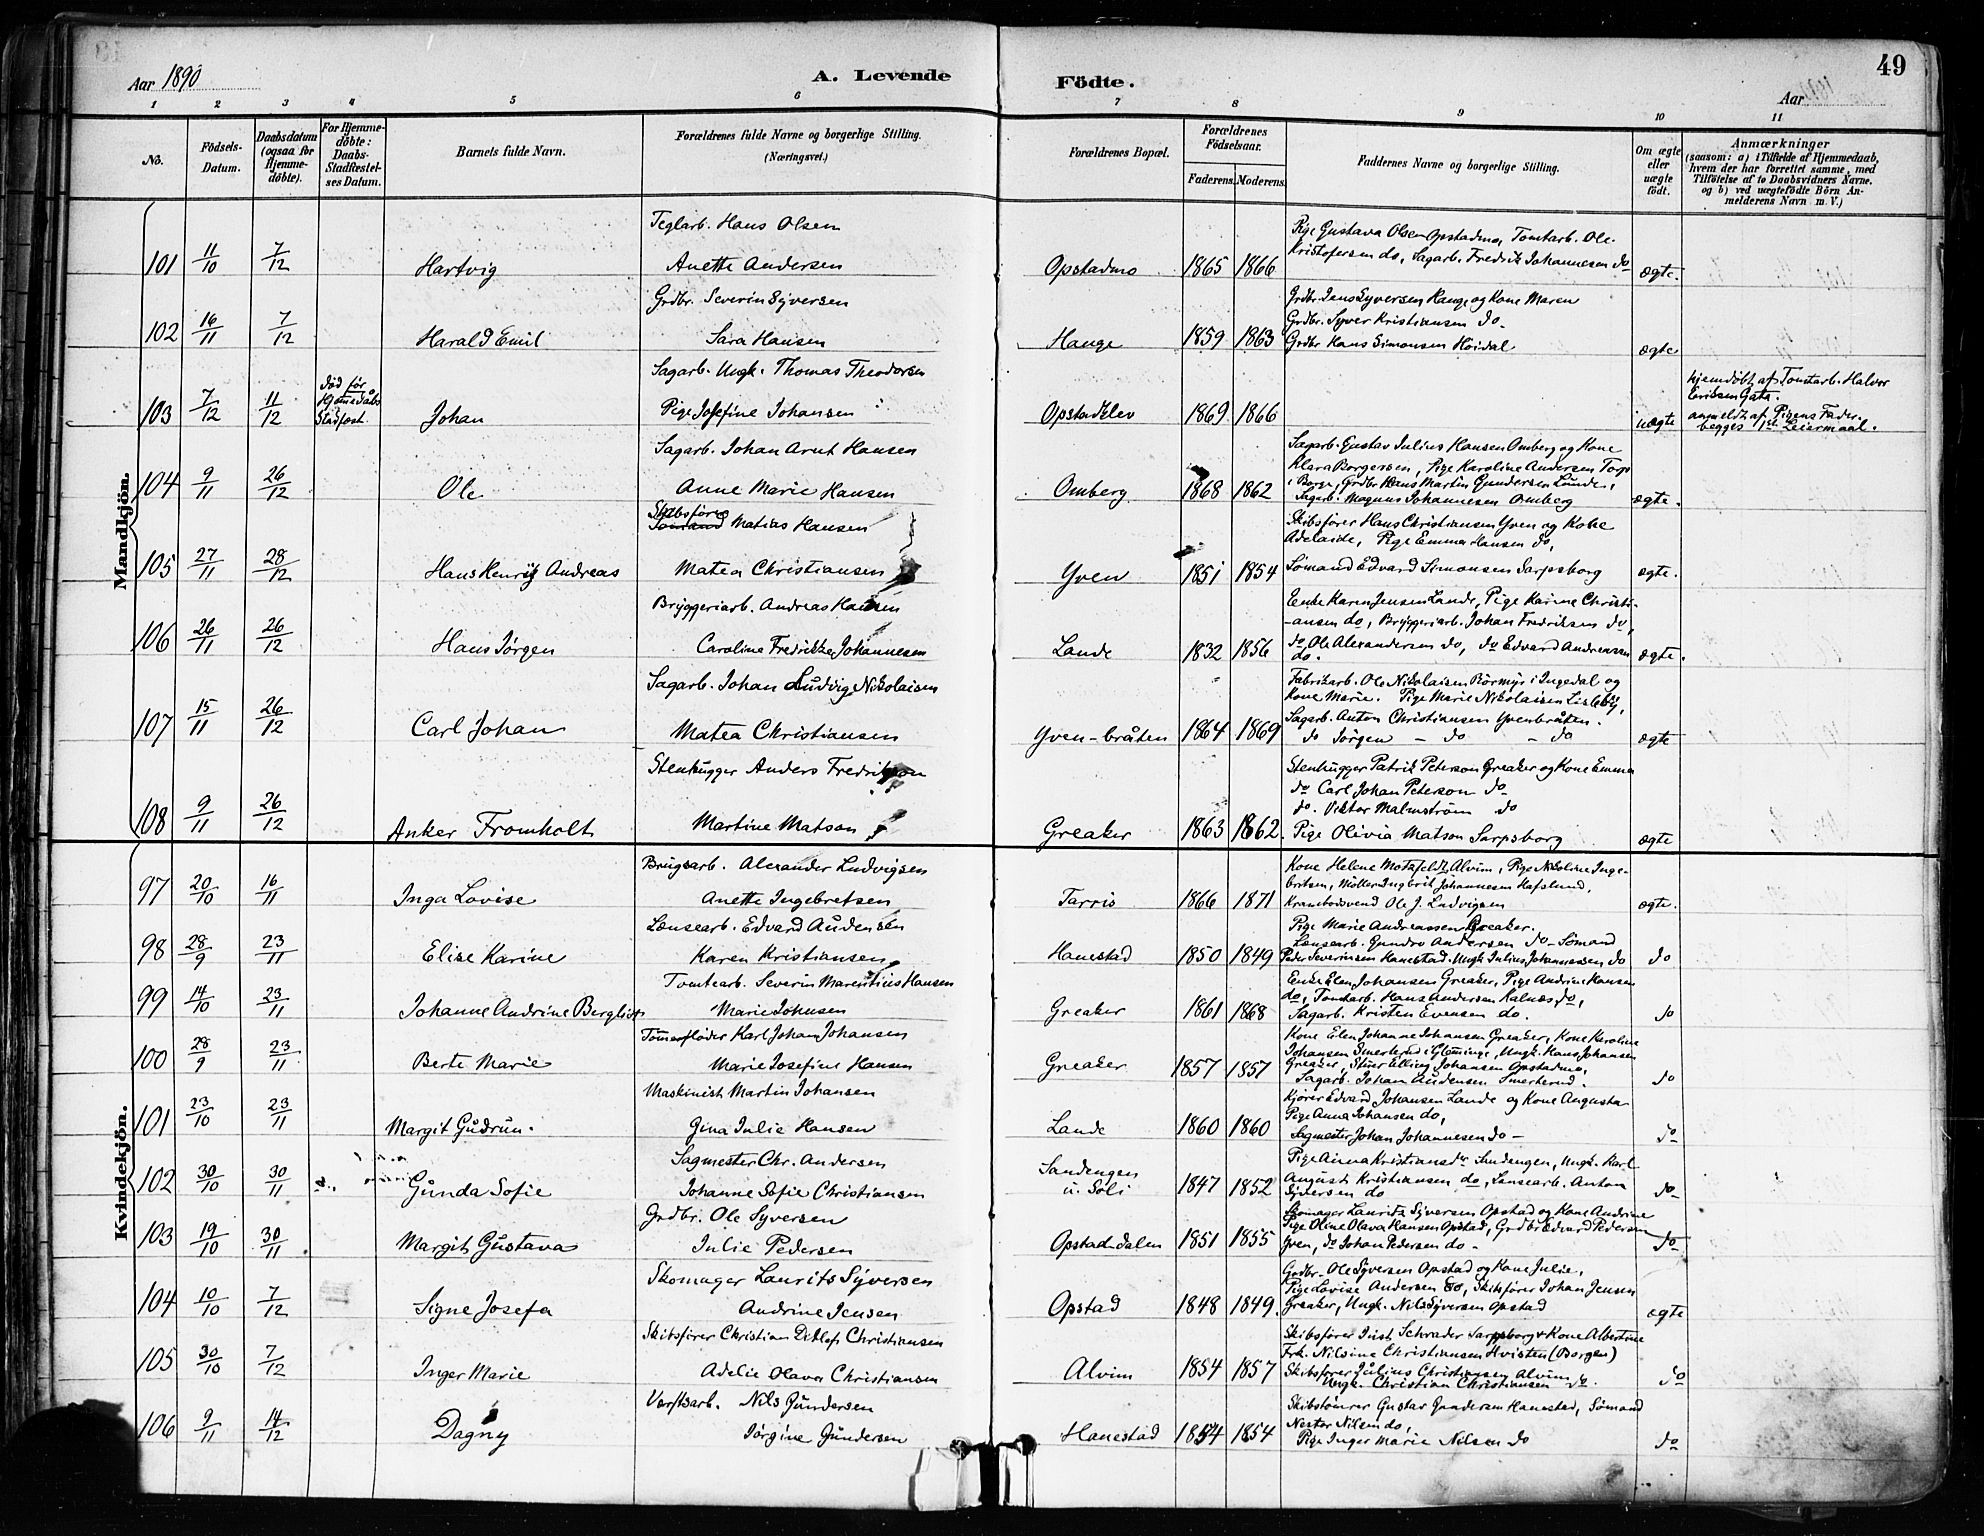 Aar 1890
A. Levende Fødte.
49
Aar
1 2 3 4 5 6 7 8 9 10 11
No.
Fødsels-Datum.
Daabsdatum (ogsaa for Hjemme-døbte).
For Hjemme-døbte: Daabs-Stadfæstel-ses Datum.
Barnets fulde Navn.
Forældrenes fulde Navne og borgerlige Stilling. (Næringsvei.)
Forældrenes Bopæl.
Forældrenes Fødselsaar.
Faderens. Moderens.
Faddernes Navne og borgerlige Stilling.
Om ægte eller uægte født.
Anmærkninger (saasom: a) i Tilfælde af Hjemmedaab, hvem der har forrettet samme, med Tilføielse af to Daabsvidners Navne, og b) ved uægtefødte Børn An-melderens Navn m. V.)
Mandkjøn.
101 11/10 7/12 Hartvig
Teglarb. Hans Olsen
Anette Andersen
Opstadmo 1865 1866
Pige Gustava Olsen Opstadmo, Tomtarb. Ole
Kristofersen do, Sagarb. Fredrik Johannesen do
ægte.
102 16/11 7/12 Harald Emil
Grdbr. Severin Syversen
Sara Hansen
Hauge 1859 1863
Grdbr. Jens Syversen Hauge og Kone Maren
Grdbr. Syver Kristiansen do.
Grdbr Hans Simonsen Hoidal
ægte
103 7/12 11/12 død før Hjemedåbs Stadfæst. Johan
Sagarb. Ungk. Thomas Theodorsen
Pige Josefine Johansen
Opstadelev 1869 1866
uægte
hjemdøbt af Tomtarb. Halvor
Eriksen Gata.
anmeldt af Pigens Fader.
begges 1ste Leiermaal.
104 9/11 26/12 Ole
Sagarb. Johan Arnt Hansen
Anne Marie Hansen
Omberg 1868 1862
Sagarb. Gustav Julius Hansen Omberg og Kone
Klara Borgersen, Pige Karoline Andersen Torp
i Borge, Grdbr Hans Martin Gundersen Lunde,
Sagarb. Magnus Johannesen Omberg
ægte.
105 27/11 28/12 Hans Henrik Andreas
Skibsfører Matias Hansen
Matea Christiansen
Yven 1851 1854
Skibsfører Hans Christiansen Yven og Kone
Adelaide, Pige Emma Hansen do,
Sømand Edvard Simonsen Sarpsborg
ægte.
106 26/11 26/12 Hans Jørgen
Bryggeriarb. Andreas Hansen
Caroline Fredrikke Johannesen
Lande 1832 1856
Enke Karen Jensen Lande, Pige Karine Christi-
-ansen do, Bryggeriarb. Johan Fredriksen do,
do Ole Alexandersen do, do Edvard Andreassen
do.
ægte.
107 15/11 26/12 Carl Johan
Sagarb. Johan Ludvig Nikolaisen
Matea Christiansen
Yven-bråten 1864 1869
Fabrikarb. Ole Nikolaisen Rørmyr i Ingedal og
Kone Marie. Pige Marie Nikolaisen Lisleby,
Sagarb. Anton Christiansen Yvenbråten.
do Jørgen - do - do
ægte
108 9/11 26/12 Anker Fromholt
Stenhugger Anders Fredrikson
Martine Matson
Greaker 1863 1862.
Stenhugger Patrik Peterson Greaker og Kone Emma
do Carl Johan Peterson do
do. Viktor Malmstrøm do
Pige Olivia Matson Sarpsborg
ægte
Kvindekjøn.
97 20/10 16/11 Inga Lovise
Brugsarb. Alexander Ludvigsen
Anette Ingebretsen
Tarris 1866 1871
Kone Helene Motzfeldt Alvim, Pige Nikoline Inge-
britsen, Møller Ingbrit Johannesen Hafslund,
Krambodsvend Ole J. Ludvigsen
ægte.
98 28/9 23/11 Elise Karine
Lænsearb. Edvard Audensen
Karen Kristiansen
Hanestad 1850 1849
Pige Marie Andreassen Greaker.
Lænsearb. Gundro Andersen do - Sømand
Peder Severinsen Hanestad. Ungk Julius Johannessen do
do
99 14/10 23/11 Johanne Andrine Bergliot
Tomtearb. Severin Marentius Hansen
Marie Johnsen
Greaker 1861 1868
Enke Elen Johansen Greaker, Pige Andrine Hansen
do, Tomtarb. Hans Andersen Kalnæs do,
Sagarb. Kristen Evensen do.
do
100 28/9 23/11 Berte Marie
Tømerfløder Karl Johan Johansen
Marie Josefine Hansen
Greaker 1857 1857
Kone Elen Johanne Johansen Greaker, Kone Karoline
Johansen Smerterud i Glemminge, Ungk. Hans Johansen
Greaker, Stuer Elling Johansen Opstadmo,
Sagarb. Johan Audensen Smerterud.
do
101 23/10 23/11 Margit Gudrun.
Maskinist Martin Johansen
Gina Julie Hansen
Lande 1860 1860
Kjører Edvard Johansen Lande og Kone Augusta
Pige Anna Johansen do,
Sagmester Johan Johannesen do -
do
102 30/10 30/11 Gunda Sofie
Sagmester Chr. Andersen
Johanne Sofie Christiansen
Sandengen
u. Soli 1847 1852
Pige Anna Kristiansdr Sandengen, Ungk. Karl
August Kristiansen do, Lensearb. Anton
Syversen do
do
103 19/10 30/11 Margit Gustava
Grdbr. Ole Syversen
Julie Pedersen
Opstad-dalen 1851 1855
Skomager Laurits Syversen Opstad og Kone Andrine
Pige Oline Olava Hansen Opstad, Grdbr Edvard Pedersen
Yven, do Johan Pedersen do.
do
104 10/10 7/12 Signe Josefa
Skomager Laurits Syversen
Andrine Jensen
Opstad 1848 1849.
Grdbr. Ole Syversen Opstad og Kone Julie,
Pige Lovise Andersen do, Skibsfører Johan Jensen
Greaker, Ungk. Nils Syversen Opstad
ægte
105 30/10 7/12 Inger Marie
Skibsfører Christian Ditlef Christiansen
Adelie Olava Christiansen
Alvim 1854 1857
Skibsfører Just Schrader Sarpsborg & Kone Albertine
Frk. Nilsine Christiansen Hvisten (Borgen)
Skibsfører Julius Christiansen Alvim
Ungk. Christian Christiansen do.
do
106 9/11 14/12 Dagny
Verftsarb. Nils Gundersen
Jørgine Gundersen
Hanestad 1854 1854
Skibstømrer Gustav Gundersen Hanestad, Sømand
Nestor Nilsen do,
Pige Inger Marie Nilsen do
do